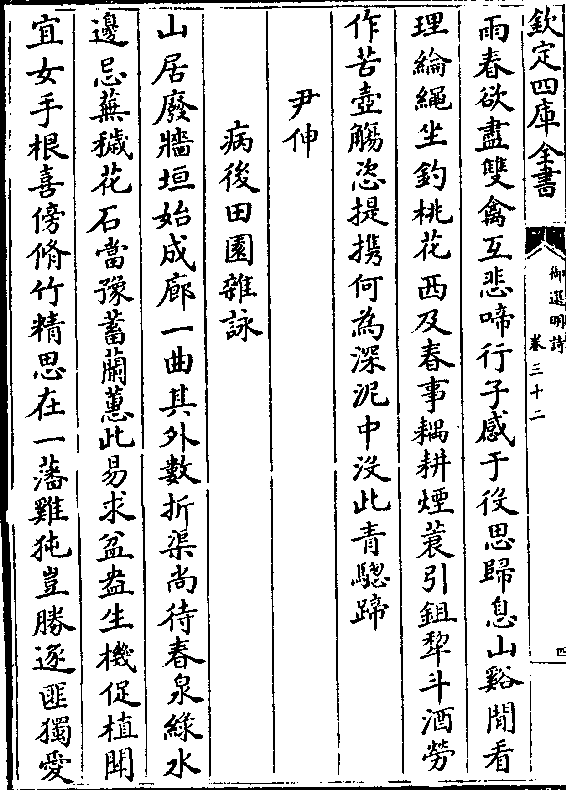 欽定四庫全書
御選明詩
卷三十二
四
雨春欲盡雙禽互悲啼行子感于役思歸息山谿閒看
理綸繩坐釣桃花西及春事耦耕煙蓑引鉏犂斗酒勞
作苦壺觴恣提攜何為深泥中沒此青驄蹄
尹伸
病後田園雜詠
山居廢牆垣始成廊一曲其外數折渠尚待春泉綠水
邊忌蕪穢花石當豫蓄蘭蕙此易求盆盎生機促植閑
宜女手根喜傍脩竹精思在一藩雞㹠豈勝逐匪獨愛